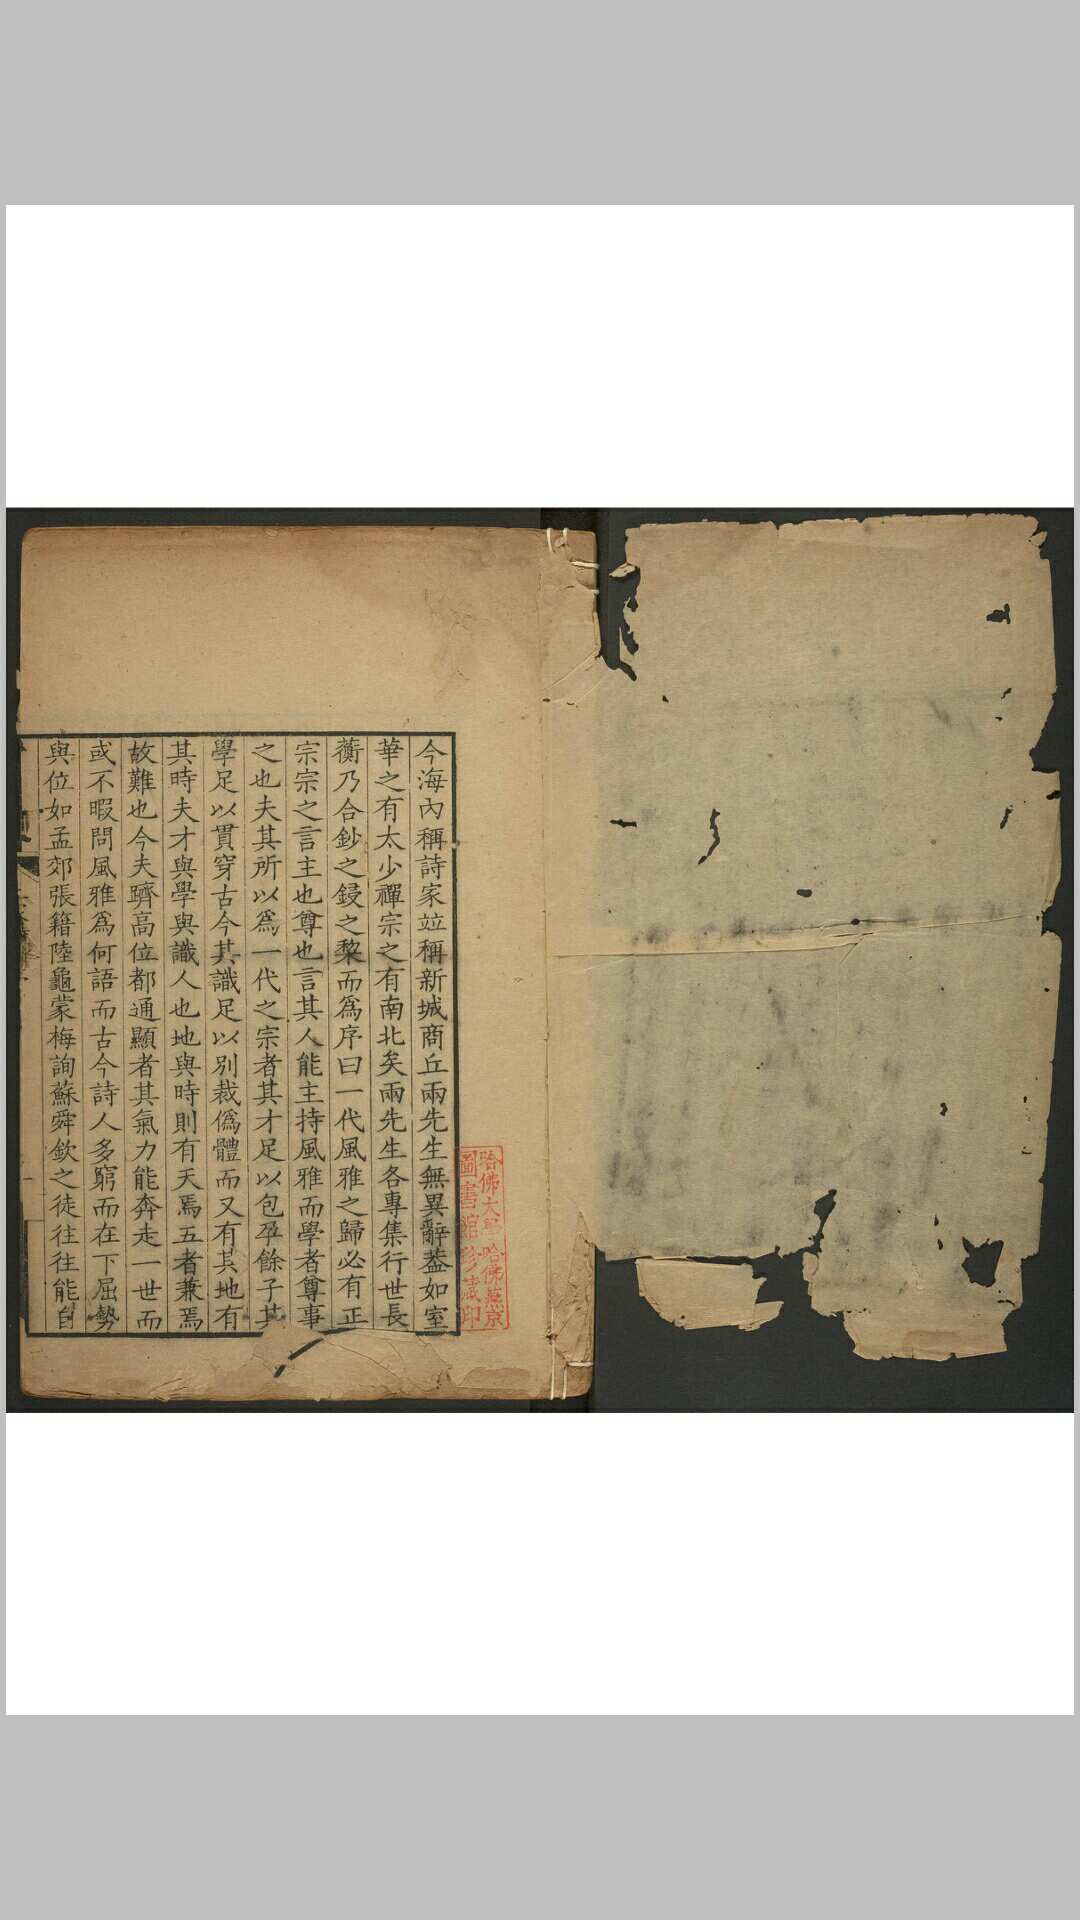 今海內稱詩家竝稱新城商丘兩先生無異辭葢如室
華之有太少禪宗之有南北矣兩先生各專集行世長
蘅乃合鈔之鋟之黎而爲序曰一代風雅之歸必有正
宗宗之言主也尊也言其人能主持風雅而學者尊事
之也夫其所以爲一代之宗者其才足以包孕餘子其
學足以貫穿古今其識足以別裁僞體而又有其地有
其時夫才與學與識人也地與時則有天焉五者兼焉
故難也今夫躋高位都通顯者其氣力能奔走一世而
或不暇問風雅爲何語而古今詩人多窮而在下屈勢
與位如孟郊張籍陸龜蒙梅詢蘇舜欽之徒往往能自
哈佛大學哈佛燕京
圖書館珍藏印